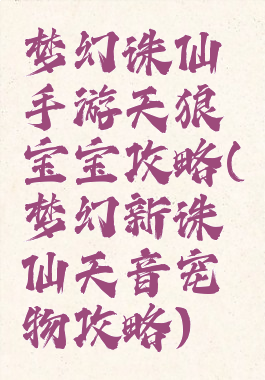 梦幻诛仙
手游天狼
宝宝攻略(
梦幻新诛
仙天音宠
物攻略)